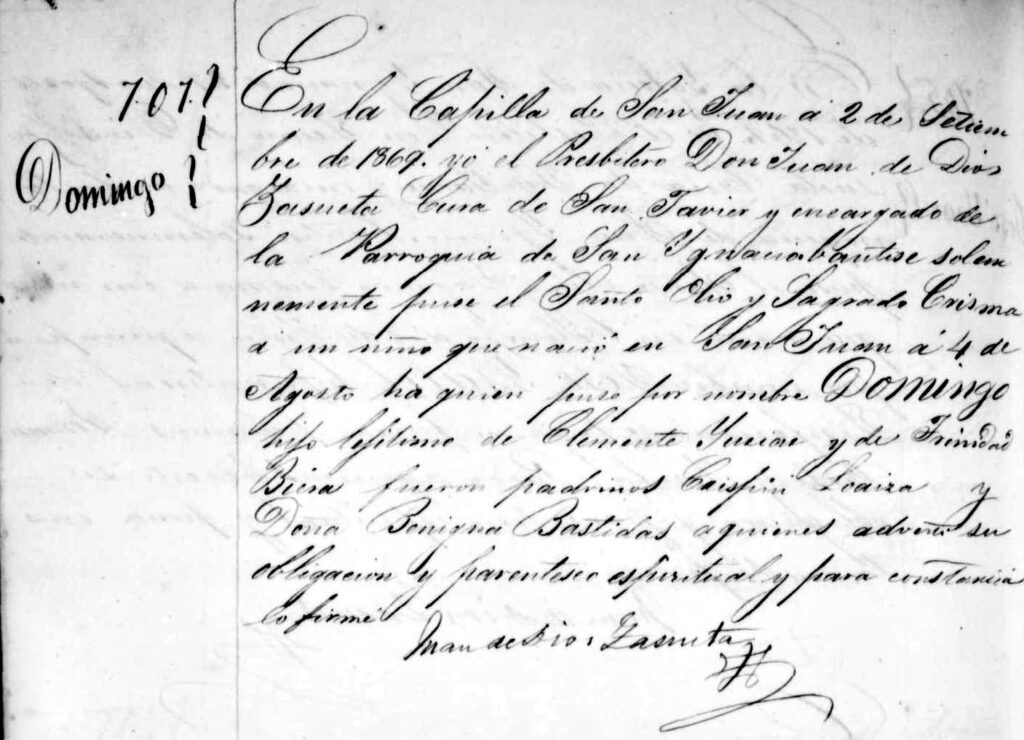 707
Domingo
En la Capilla de San Juan á 2 de Setiem
bre de 1869. yó el Presbitero Don Juan de Dios
Zasueta Cura de San Javier y encargado de
la Parroquia de San Ygnacio bautise solem
nemente puse el Santo Olio y Sagrado Crisma
a un niño que nació en San Juan á 4 de
Agosto ha quien puse por nombre Domingo
hijo lejitimo de Clemente y de Trinidad
fueron padrinos Crispin Loaiza y
Doña Benigna Bastidas a quienes adverti su
obligacion y parentesco espiritual y para constancia
lo firmé
Juan de Dios Zasueta